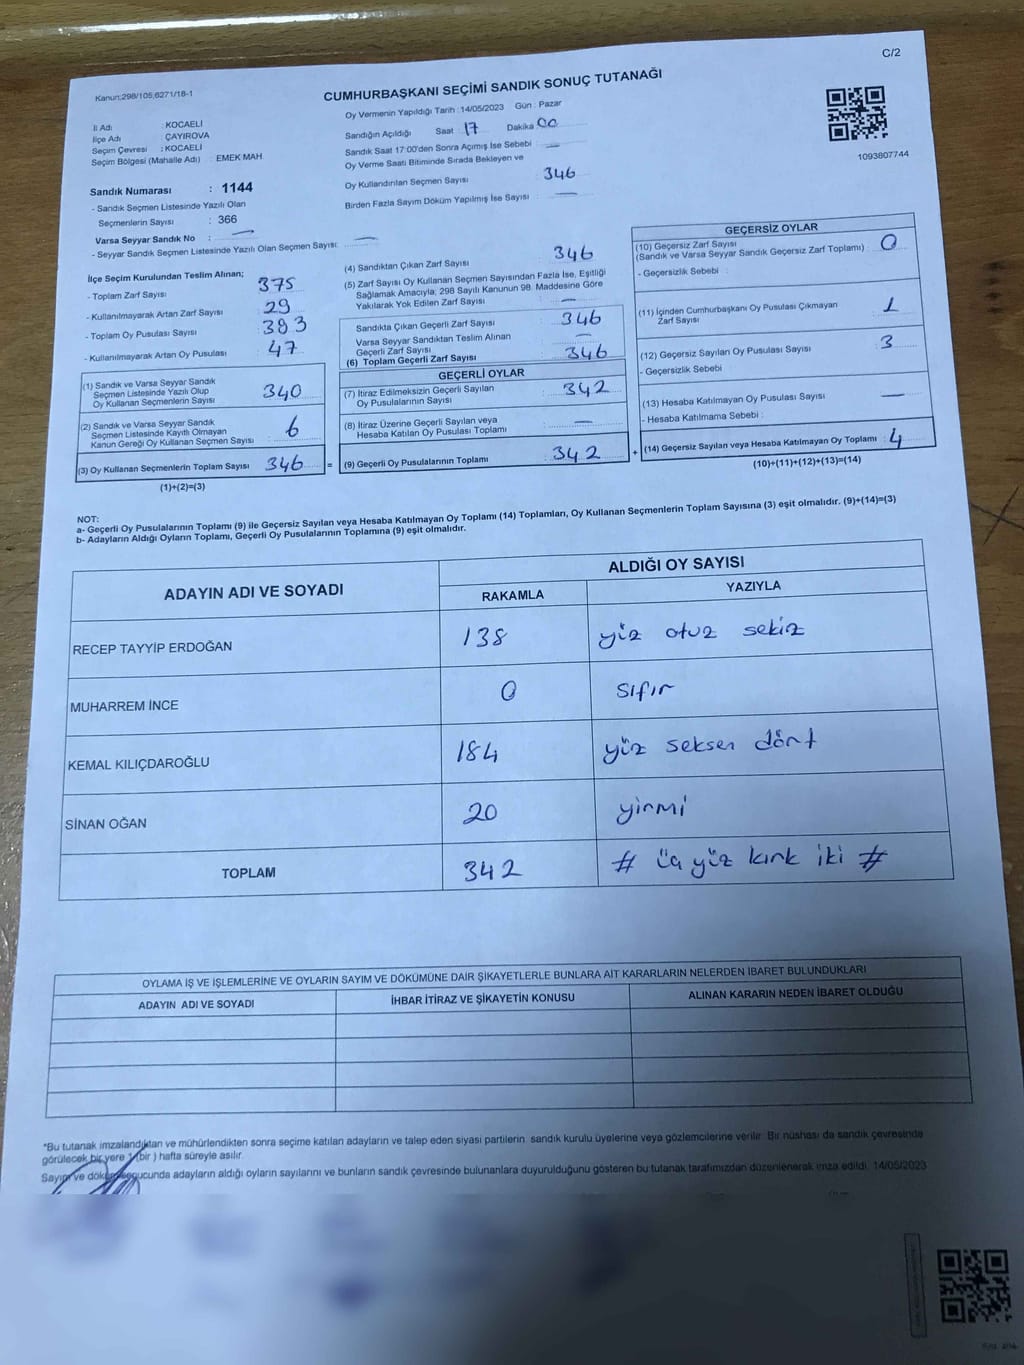 C/2
Kanun:298/105,6271/18-1
CUMHURBAŞKANI SEÇİMİ SANDIK SONUÇ TUTANAĞI
İl Adı : KOCAELİ
İlçe Adı : ÇAYIROVA
Seçim Çevresi : KOCAELİ
Seçim Bölgesi (Mahalle Adı) : EMEK MAH.
Sandık Numarası : 1144
- Sandık Seçmen Listesinde Yazılı Olan
Seçmenlerin Sayısı : 366
Varsa Seyyar Sandık No : —
- Seyyar Sandık Seçmen Listesinde Yazılı Olan Seçmen Sayısı: —
Oy Vermenin Yapıldığı Tarih :14/05/2023 Gün : Pazar
Sandığın Açıldığı Saat : 17 Dakika 00
Sandık Saat 17:00'den Sonra Açımış İse Sebebi —
Oy Verme Saati Bitiminde Sırada Bekleyen ve
Oy Kullandırılan Seçmen Sayısı : 346
Birden Fazla Sayım Döküm Yapılmış İse Sayısı : —
1093807744
İlçe Seçim Kurulundan Teslim Alınan;
- Toplam Zarf Sayısı : 375
- Kullanılmayarak Artan Zarf Sayısı : 29
- Toplam Oy Pusulası Sayısı : 393
- Kullanılmayarak Artan Oy Pusulası : 47
(1) Sandık ve Varsa Seyyar Sandık
Seçmen Listesinde Yazılı Olup
Oy Kullanan Seçmenlerin Sayısı : 340
(2) Sandık ve Varsa Seyyar Sandık
Seçmen Listesinde Kayıtlı Olmayan
Kanun Gereği Oy Kullanan Seçmen Sayısı : 6
(3) Oy Kullanan Seçmenlerin Toplam Sayısı : 346 =
(1)+(2)=(3)
(4) Sandıktan Çıkan Zarf Sayısı : 346
(5) Zarf Sayısı Oy Kullanan Seçmen Sayısından Fazla İse, Eşitliği
Sağlamak Amacıyla, 298 Sayılı Kanunun 98. Maddesine Göre
Yakılarak Yok Edilen Zarf Sayısı : —
Sandıkta Çıkan Geçerli Zarf Sayısı : 346
Varsa Seyyar Sandıktan Teslim Alınan
Geçerli Zarf Sayısı : —
(6) Toplam Geçerli Zarf Sayısı : 346
GEÇERLİ OYLAR
(7) İtiraz Edilmeksizin Geçerli Sayılan
Oy Pusulalarının Sayısı : 342
(8) İtiraz Üzerine Geçerli Sayılan veya
Hesaba Katılan Oy Pusulası Toplamı : —
(9) Geçerli Oy Pusulalarının Toplamı : 342 +
GEÇERSİZ OYLAR
(10) Geçersiz Zarf Sayısı : 0
(Sandık ve Varsa Seyyar Sandık Geçersiz Zarf Toplamı)
- Geçersizlik Sebebi :
(11) İçinden Cumhurbaşkanı Oy Pusulası Çıkmayan
Zarf Sayısı : 1
(12) Geçersiz Sayılan Oy Pusulası Sayısı : 3
- Geçersizlik Sebebi
(13) Hesaba Katılmayan Oy Pusulası Sayısı : —
- Hesaba Katılmama Sebebi :
(14) Geçersiz Sayılan veya Hesaba Katılmayan Oy Toplamı : 4
(10)+(11)+(12)+(13)=(14)
NOT:
a- Geçerli Oy Pusulalarının Toplamı (9) ile Geçersiz Sayılan veya Hesaba Katılmayan Oy Toplamı (14) Toplamları, Oy Kullanan Seçmenlerin Toplam Sayısına (3) eşit olmalıdır. (9)+(14)=(3)
b- Adayların Aldığı Oyların Toplamı, Geçerli Oy Pusulalarının Toplamına (9) eşit olmalıdır.
ADAYIN ADI VE SOYADI ALDIĞI OY SAYISI
RAKAMLA YAZIYLA
RECEP TAYYİP ERDOĞAN 138 yüz otuz sekiz
MUHARREM İNCE 0 sıfır
KEMAL KILIÇDAROĞLU 184 yüz seksen dört
SİNAN OĞAN 20 yirmi
TOPLAM 342 # üç yüz kırk iki #
OYLAMA İŞ VE İŞLEMLERİNE VE OYLARIN SAYIM VE DÖKÜMÜNE DAİR ŞİKAYETLERLE BUNLARA AİT KARARLARIN NELERDEN İBARET BULUNDUKLARI
ADAYIN ADI VE SOYADI İHBAR İTİRAZ VE ŞİKAYETİN KONUSU ALINAN KARARIN NEDEN İBARET OLDUĞU
*Bu tutanak imzalandıktan ve mühürlendikten sonra seçime katılan adayların ve talep eden siyasi partilerin sandık kurulu üyelerine veya gözlemcilerine verilir. Bir nüshası da sandık çevresinde
görülecek bir yere 1 (bir ) hafta süreyle asılır.
Sayım ve döküm sonucunda adayların aldığı oyların sayılarını ve bunların sandık çevresinde bulunanlara duyurulduğunu gösteren bu tutanak tarafımızdan düzenlenerek imza edildi. 14/05/2023